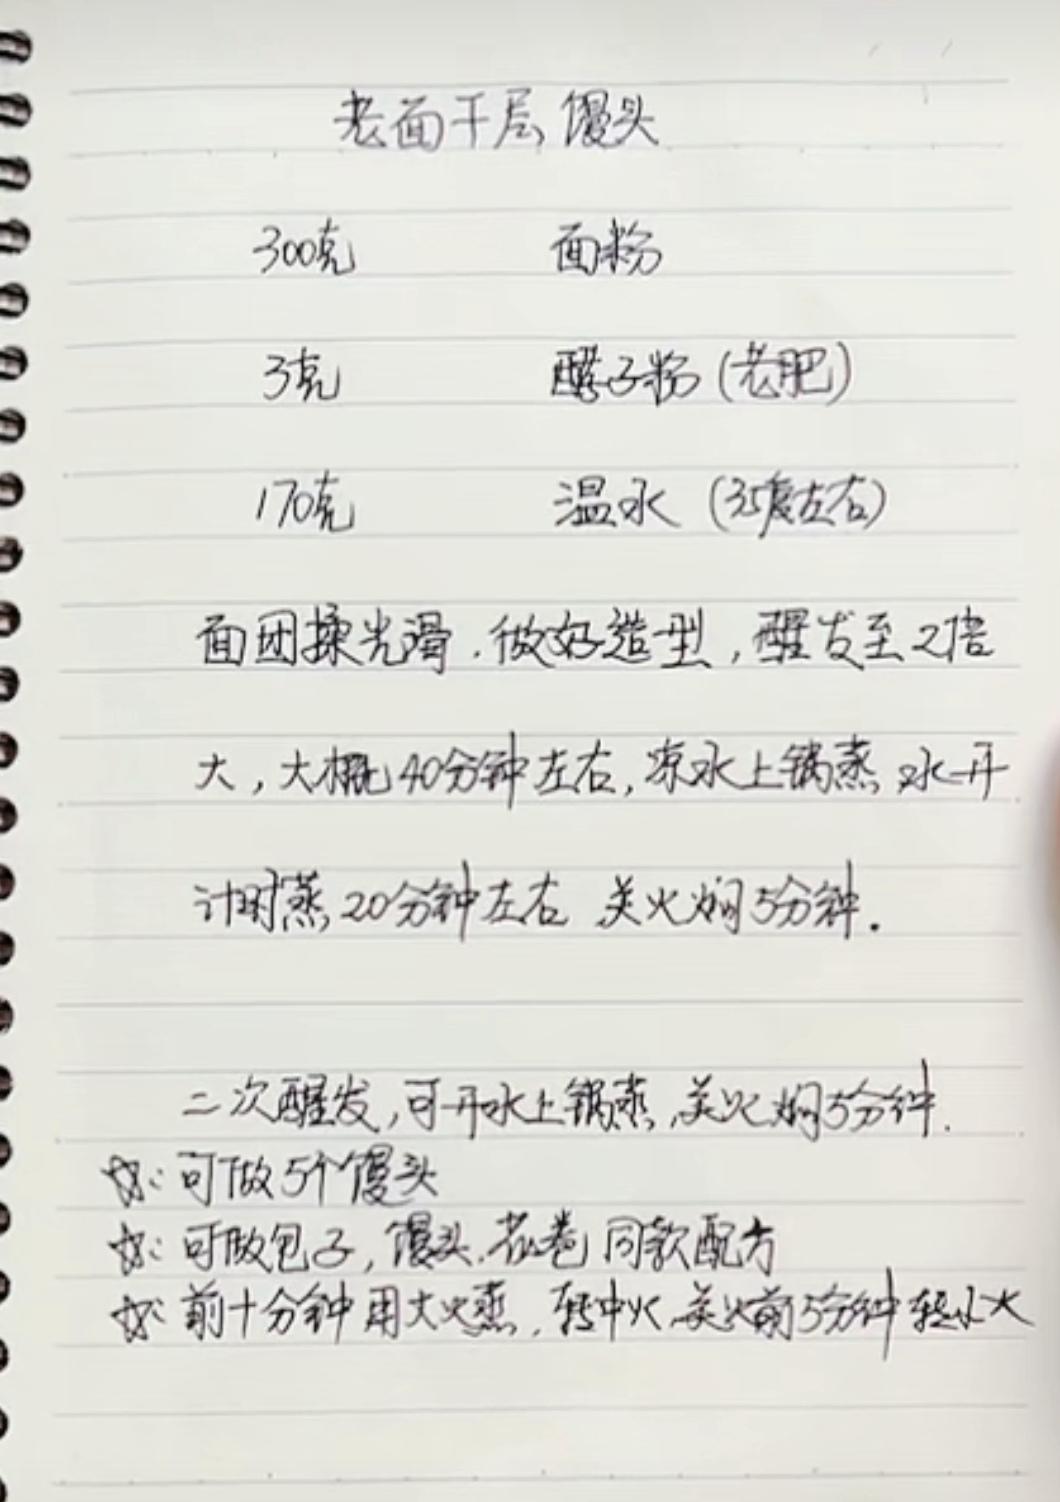 老面千层馒头
300克 面粉
3克 酵子粉（老肥）
170克 温水（35度左右）
面团揉光滑.做好造型,醒发至2倍
大,大概40分钟左右,凉水上锅蒸,水开
计时蒸20分钟左右 关火焖5分钟.
二次醒发,可开水上锅蒸,关火焖5分钟.
☆:可做5个馒头
☆:可做包子,馒头.花卷同款配方
☆:前十分钟用大火蒸,转中火.关火前5分钟转小火